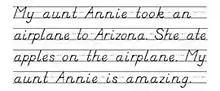 My aunt Annie took an
airplane to Arizona. She ate
apples on the airplane. My
aunt Annie is amazing.